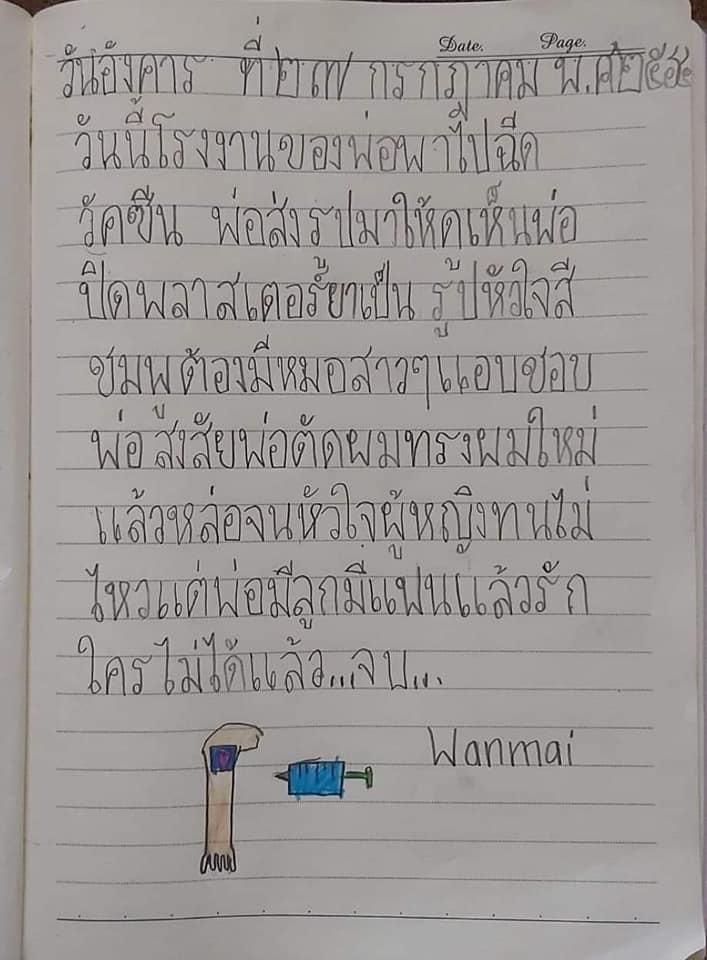 Date. Page.
วันอังคาร ที่ ๒๗ กรกฎาคม พ.ศ๒๕๖๔
วันนี้โรงงานของพ่อพาไปฉีด
วัคซีน พ่อส่งรูปมาให้ดูเห็นพ่อ
ปิดพลาสเตอร์ยาเป็น รูปหัวใจสี
ชมพูต้องมีหมอสาวๆแอบชอบ
พ่อ สงสัยพ่อตัดผมทรงผมใหม่
แล้วหล่อจนหัวใจผู้หญิงทนไม่
ไหวแต่พ่อมีลูกมีแฟนแล้วรัก
ใครไม่ได้แล้ว...จบ...
Wanmai